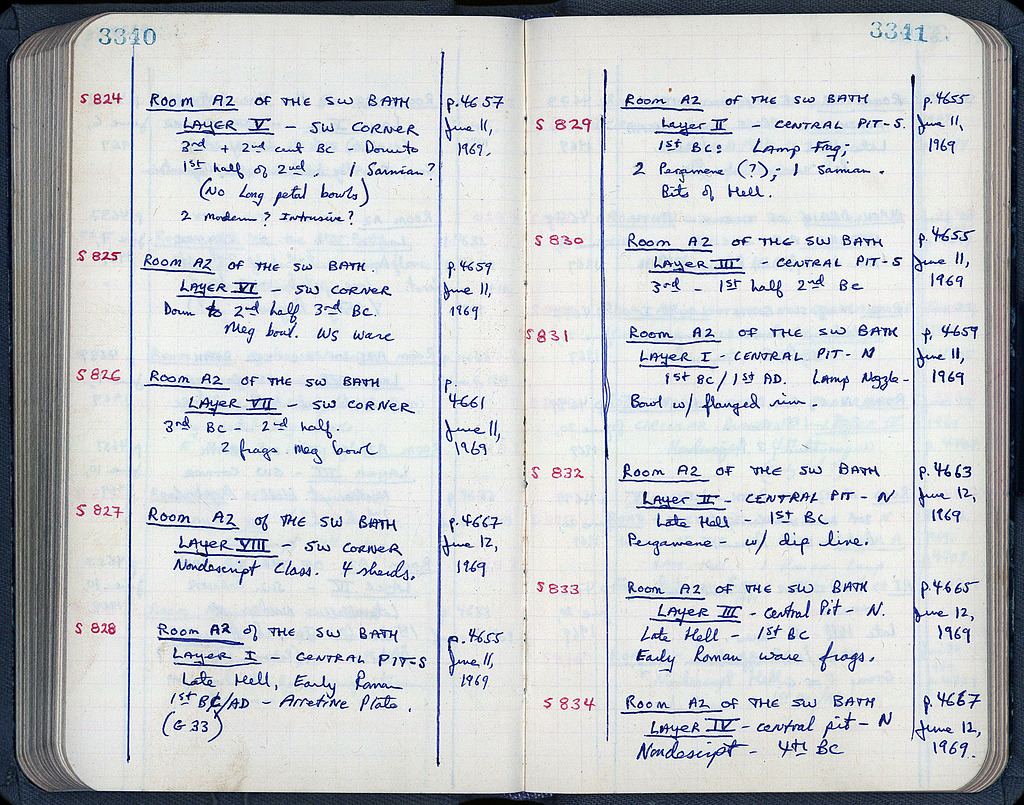 3340
S 824 Room A2 OF THE SW BATH p. 4657
LAYER V - SW CORNER June 11,
3rd + 2nd cent BC Down to 1969.
1st half of 2nd 1 Samian?
(No Long petal bowls)
2 modern? Intrusive?
S 825 Room A2 OF THE SW BATH. p. 4659
LAYER VI - SW CORNER June 11,
Down to 2nd half 3rd BC. 1969
Meg bowl. WS ware
S 826 Room A2 OF THE SW BATH p.
LAYER VII - SW CORNER 4661
3rd BC - 2nd half. June 11,
2 frags. Meg bowl 1969
S 827 Room A2 of THE SW BATH p. 4667
LAYER VIII - SW CORNER June 12,
Nondescript Class. 4 sherds. 1969
S 828 Room A2 of THE SW BATH p. 4655
LAYER I - CENTRAL PIT-S June 11,
Late Hell, Early Roman 1969
1st BC/AD - Arretine Plate.
(G 33)
3341
Room A2 OF THE SW BATH p. 4655
S 829 Layer II - CENTRAL PIT-S. June 11,
1st BC: Lamp Frag; 1969
2 Pergamene (?); 1 Samian.
Bits of Hell.
S 830 Room A2 OF THE SW BATH p. 4655
LAYER III - CENTRAL PIT-S June 11,
3rd - 1st half 2nd BC 1969
S 831 Room A2 OF THE SW BATH p. 4659
LAYER I - CENTRAL PIT - N June 11,
1st BC / 1st AD. Lamp Nozzle - 1969
Bowl w/ flanged rim.
S 832 Room A2 OF THE SW BATH p. 4663
LAYER II - CENTRAL PIT - N June 12,
Late Hell - 1st BC 1969
Pergamene - w/ dip line.
S 833 Room A2 OF THE SW BATH p. 4665
LAYER III - Central Pit - N. June 12,
Late Hell - 1st BC 1969
Early Roman ware frags.
S 834 Room A2 of THE SW BATH p. 4667
LAYER IV - central pit - N June 12,
Nondescript - 4th BC 1969.